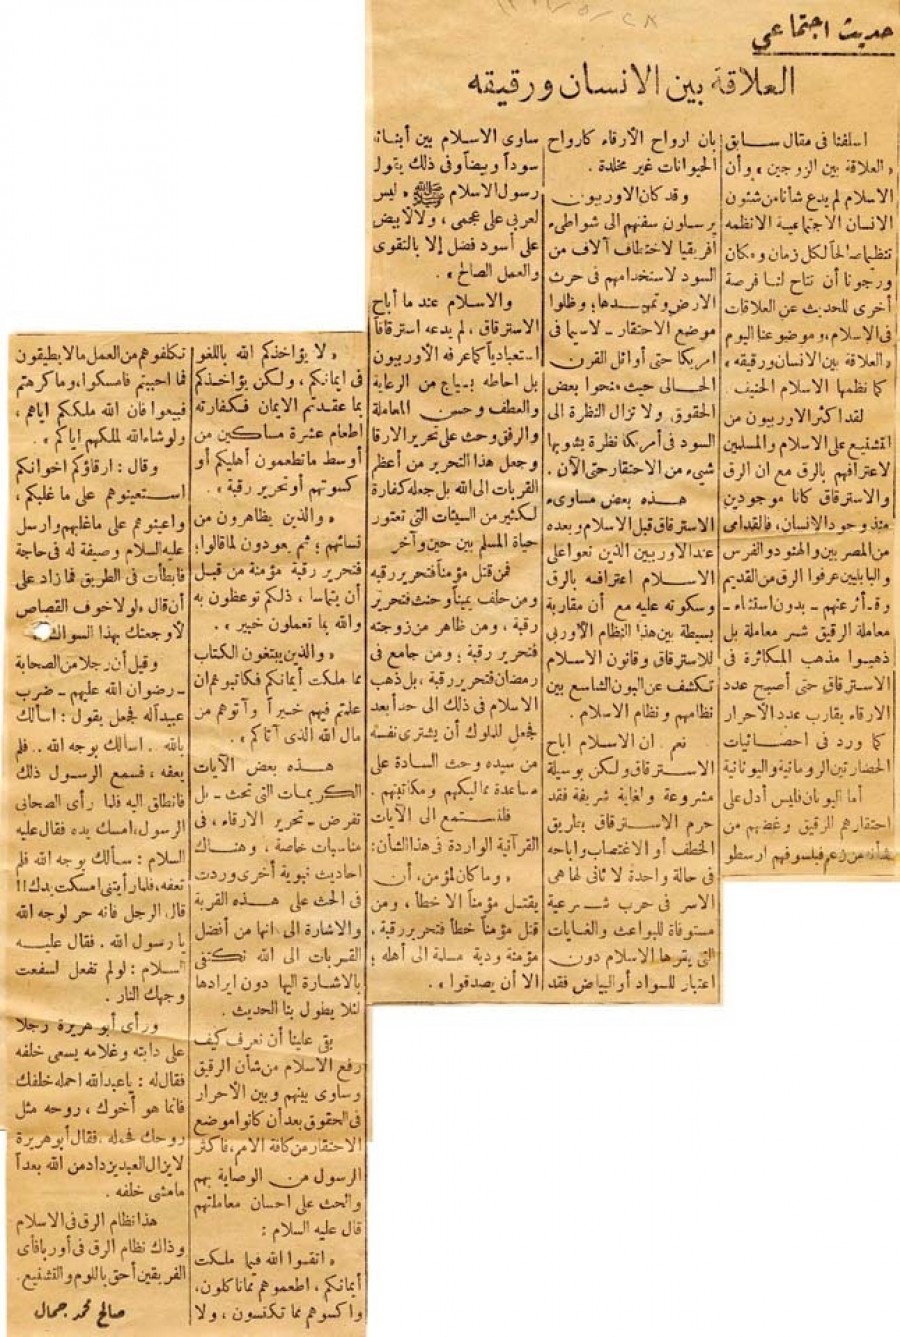 حديث اجتماعي
العلاقة بين الانسان ورقيقه
اسلفنا في مقال سابق
« العلاقة بين الزوجين » وأن
الاسلام لم يدع شأنا من شئون
الانسان الاجتماعية الا نظمه
تنظيما صالحاً لكل زمان ومكان
ورجونا أن تتاح لنا فرصة
أخرى للحديث عن العلاقات
في الاسلام، وموضوعنا اليوم
« العلاقة بين الانسان ورقيقه »
كما نظمها الاسلام الحنيف .
لقد اكثر الاوربيون من
التشنيع على الاسلام والمسلمين
لاعترافهم بالرق مع ان الرق
والاسترقاق كانا موجودين
منذ وجود الانسان، فالقدامى
من المصريين والهنود والفرس
والبابليين عرفوا الرق من القديم
وقد أثر عنهم - بدون استثناء -
معاملة الرقيق شر معاملة بل
ذهبوا مذهب المكاثرة في
الاسترقاق حتى أصبح عدد
الارقاء يقارب عدد الأحرار
كما ورد في احصائيات
الحضارتين الرومانية واليونانية
أما اليونان فليس أدل على
احتقارهم الرقيق وغضهم من
شأنه من زعم فيلسوفهم ارسطو
بان ارواح الأرقاء كارواح
الحيوانات غير مخلدة .
وقد كان الاوربيون
يرسلون سفنهم الى شواطىء
افريقيا لاختطاف آلاف من
السود لاستخدامهم في حرث
الارض وتمهيدها؛ وظلوا
موضع الاحتقار - لا سيما في
امريكا حتى أوائل القرن
الحالى حيث منحوا بعض
الحقوق ولا تزال النظرة الى
السود في أمريكا نظرة يشوبها
شيء من الاحتقار حتى الآن .
هذه بعض مساوىء
الاسترقاق قبل الاسلام وبعده
عند الاوربيين الذين نعوا على
الاسلام اعترافه بالرق
وسكوته عليه مع أن مقاربة
بسيطة بين هذا النظام الأوربي
للاسترقاق وقانون الاسلام
تكشف عن البون الشاسع بين
نظامهم ونظام الاسلام .
نعم . ان الاسلام اباح
الاسترقاق ولكن بوسيلة
مشروعة ولغاية شريفة فقد
حرم الاسترقاق بطريق
الخطف أو الاغتصاب واباحه
في حالة واحدة لا ثاني لها هي
الاسر في حرب شرعية
مستوفاة للبواعث والغايات
التي يقرها الاسلام دون
اعتبار للسواد أو البياض فقد
ساوى الاسلام بين أبنائه
سوداً وبيضاً وفي ذلك يقول
رسول الاسلام ﷺ « ليس
لعربي على عجمي ، ولا لأبيض
على أسود فضل إلا بالتقوى
والعمل الصالح » .
والاسلام عند ما أباح
الاسترقاق ، لم يدعه استرقاقاً
استعبادياً كما عرفه الأوربيون
بل احاطه بسياج من الرعاية
والعطف وحسن المعاملة
والرفق وحث على تحرير الارقا
وجعل هذا التحرير من أعظم
القربات الى الله بل جعله كفارة
لكثير من السيئات التي تعتور
حياة المسلم بين حين وآخر
فمن قتل مؤمناً فتحرير رقبه
ومن حلف يميناً وحنث فتحرير
رقبة ، ومن ظاهر من زوجته
فتحرير رقبة ؛ ومن جامع في
رمضان فتحرير رقبة ، بل ذهب
الاسلام في ذلك الى حد أبعد
فجعل للملوك أن يشترى نفسه
من سيده وحث السادة على
مساعدة مماليكهم ومكاتبتهم .
فلنستمع الى الآيات
القرآنية الواردة في هذا الشأن:
« وما كان لمؤمن، أن
يقتل مؤمناً الا خطأ ، ومن
قتل مؤمناً خطأ فتحرير رقبة ،
مؤمنة ودية مسلمة الى أهله ؛
الا أن يصدقوا » .
« لا يؤاخذكم الله باللغو
في ايمانكم ، ولكن يؤاخذكم
بما عقدتم الايمان فكفارته
اطعام عشرة مساكين من
أوسط ما تطعمون أهليكم أو
كسوتهم أو تحرير رقبة » .
« والذين يظاهرون من
نسائهم ؛ ثم يعودون لما قالوا؛
فتحرير رقبة مؤمنة من قبل
أن يتماسا ، ذلكم توعظون به
والله بما تعملون خبير » .
« والذين يبتغون الكتاب
مما ملكت أيمانكم فكاتبوهم ان
علمتم فيهم خيراً وآتوهم من
مال الله الذى آتاكم » .
هذه بعض الآيات
الكريمات التي تحث - بل
تفرض - تحرير الارقاء ، في
مناسبات خاصة ، وهناك
احاديث نبوية أخرى وردت
في الحث على هذه القربة
والاشارة الى انها من أفضل
القربات الى الله نكتفى
بالاشارة اليها دون ايرادها
لئلا يطول بنا الحديث .
بقى علينا أن نعرف كيف
رفع الاسلام من شأن الرقيق
وساوى بينهم وبين الأحرار
في الحقوق بعد أن كانوا موضع
الاحتقار من كافة الامم، فاكثر
الرسول من الوصاية بهم
والحث على احسان معاملتهم
قال عليه السلام :
« اتقوا الله فيما ملكت
أيمانكم ، اطعموهم مما تاكلون،
واكسوهم مما تكتسون ، ولا
تكلفوهم من العمل مالا يطيقون
فما احببتم فامسكوا، وما كرهتم
فبيعوا فان الله ملككم اياهم ،
ولو شاء الله لملكهم اياكم » .
وقال : ارقاؤكم اخوانكم
استعينوهم على ما غلبكم ،
واعينوهم على ما غلبهم وارسل
عليه السلام وصيفة له في حاجة
فابطأت في الطريق فما زاد على
أن قال ، لولا خوف القصاص
لأوجعتك بهذا السواك
وقيل أن رجلا من الصحابة
- رضوان الله عليهم - ضرب
عبيداً له فجعل يقول : اسألك
بالله . . اسالك بوجه الله . . فلم
يعفه ، فسمع الرسول ذلك
فانطلق اليه فلما رأى الصحابى
الرسول، امسك يده فقال عليه
السلام : سالك بوجه الله فلم
تعفه، فلما رأيتنى امسكت يدك!!
قال الرجل فانه حر لوجه الله
يا رسول الله . فقال عليه
السلام : لو لم تفعل لسفعت
وجهك النار .
ورأى أبو هريرة رجلا
على دابته وغلامه يسعى خلفه
فقال له : يا عبدالله احمله خلفك
فانما هو أخوك ، روحه مثل
روحك فحمله ، فقال أبو هريرة
لا يزال العبد يزداد من الله بعداً
ما مشى خلفه .
هذا نظام الرق في الاسلام
وذاك نظام الرق في أوربا فأى
الفريقين أحق باللوم والتشنيع.
صالح محمد جمال